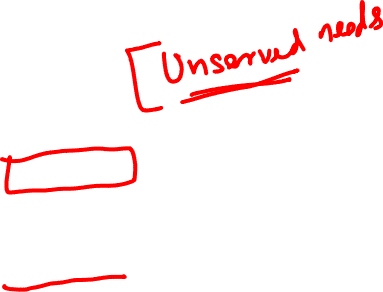 Unserved needs